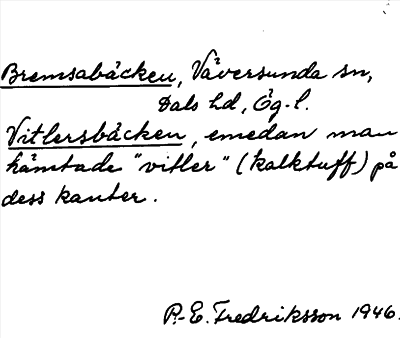 Bremsabäcken, Väversunda sn,
Dals hd, Ög. l.
Vitlersbäcken, emedan man
hämtade "vitler" (kalktuff) på
dess kanter.
P.-E. Fredriksson 1946.